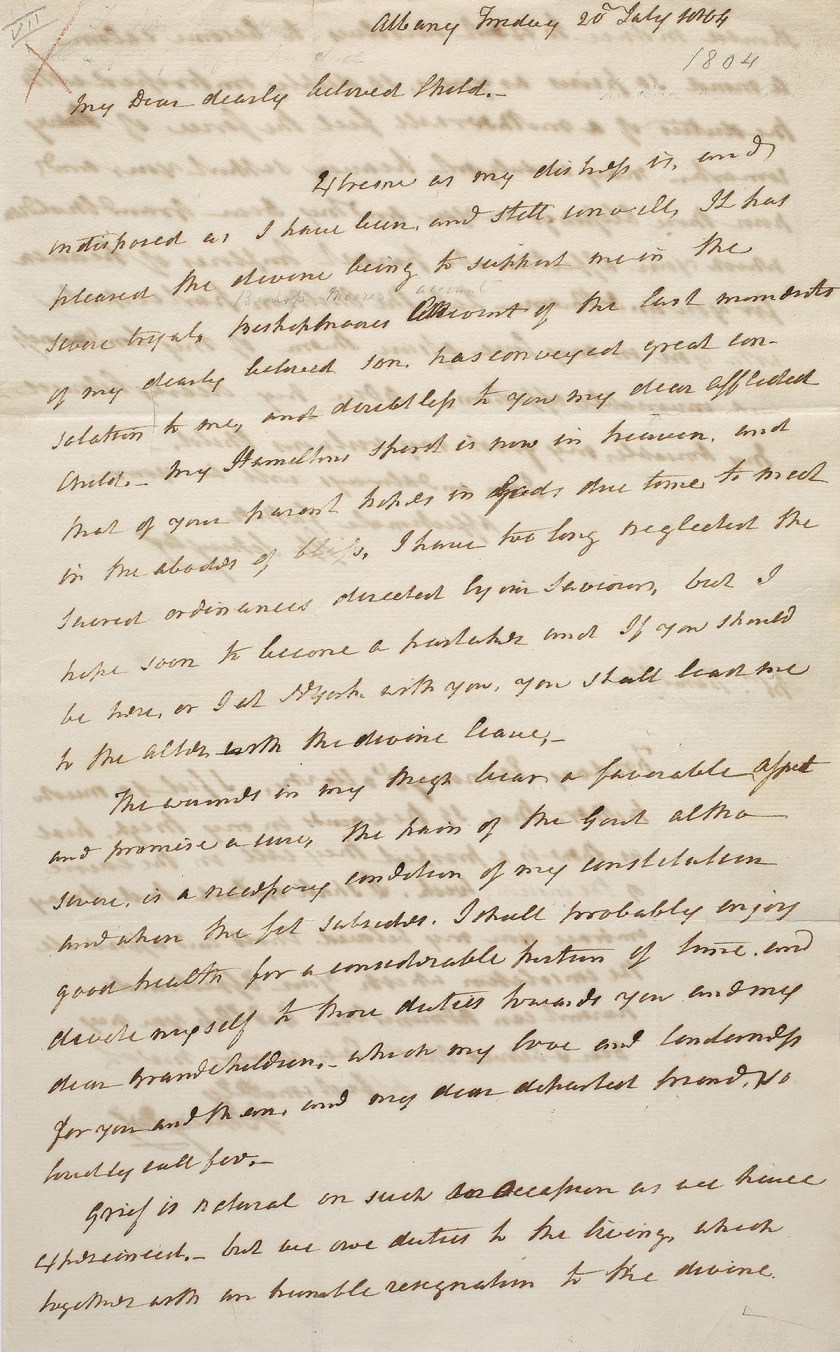 VII
Albany Friday 20th July 1804
1804
My Dear dearly beloved Child.–
Extreme as my distress is, and
indisposed as I have been, and still unwell, It has
pleased the divine being to support me in the
Bishop Moores account
severe tryal, Bishop Moores account of the last moments
of my dearly beloved son, has conveyed great con-
solation to me, and doubtless to you my dear afflicted
Child.– My Hamiltons spirit is now in heaven, and
that of your parent hopes in Gods due time to meet
in the abodes of bliss, I have too long neglected the
sacred ordinances directed by our Saviour, but I
hope soon to become a partaker and If you should
be here, or I at NYork with you, you shall lead me
to the alter with the divine leave,–
The wounds in my thigh bear a favorable aspect
and promise a cure, the pain of the Gout altho
severe, is a necessary condition of my constitution
and when the fit subsides, I shall probably enjoy
good health for a considerable portion of time, and
devote myself to those duties towards you and my
dear Grandchildren,– which my love and tenderness
for you and them, and my dear departed friend, so
loudly call for.–
Grief is natural on such an occasion as we have
experienced,– but we owe duties to the living, which
together with an humble resignation to the divine